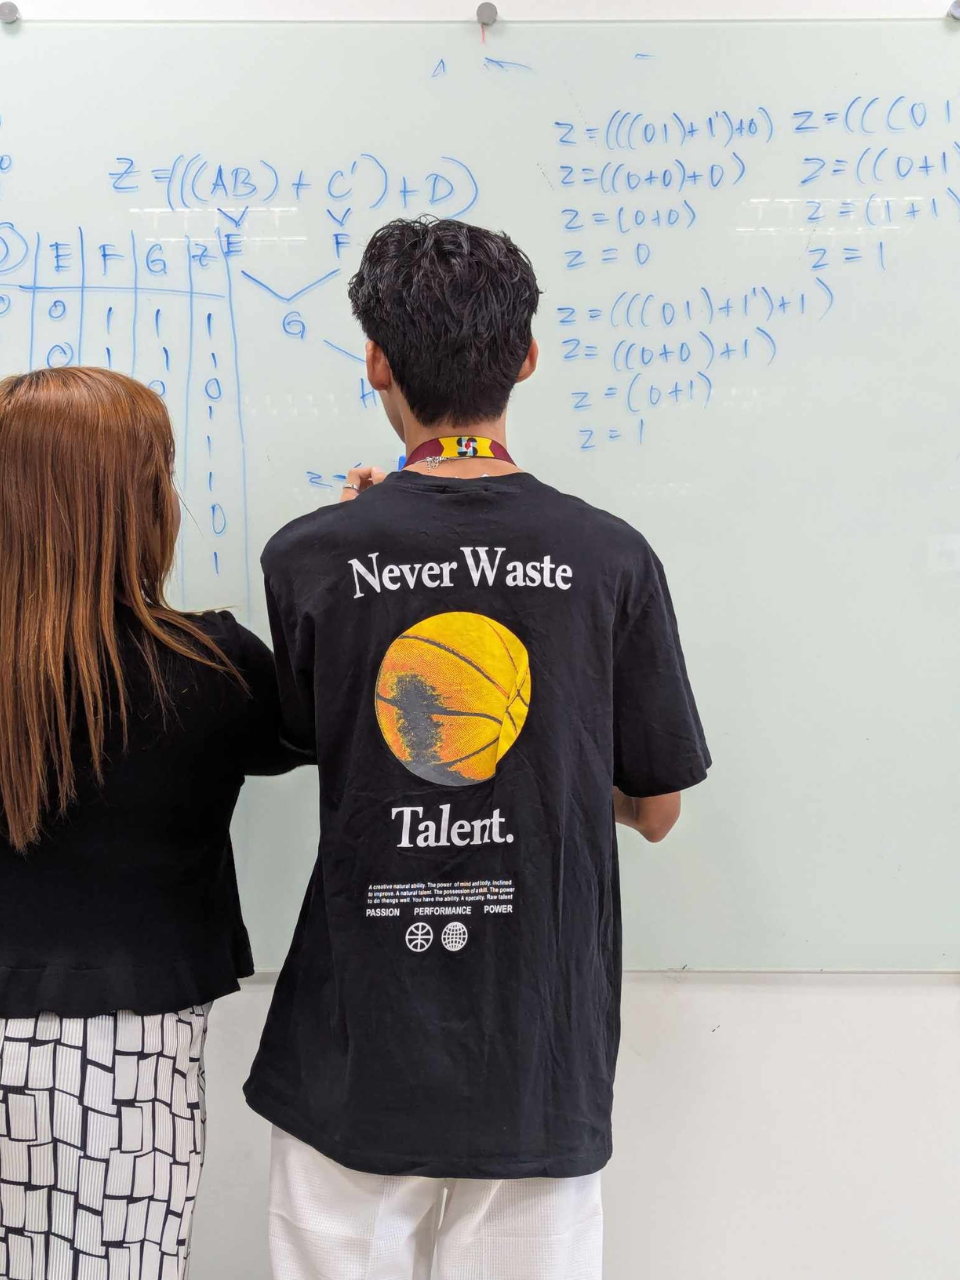 Z=(((AB)+C')+D)
E F
G
H
E F G Z
0 1 1 1
0 1 1 1
0 0
1
1
1
0
1
Z=
Z=(((01)+1')+0)
Z=((0+0)+0)
Z=(0+0)
Z=0
Z=(((01)+1')+1)
Z=((0+0)+1)
Z=(0+1)
Z=1
Z=((((01
Z=((0+1
Z=(1+1)
Z=1
Never Waste
Talent.
A creative natural ability. The power of mind and body, inclined
to improve. A natural talent. The possession of a skill. The power
to do things well. You have the ability. A specialty. Raw talent
PASSION PERFORMANCE POWER